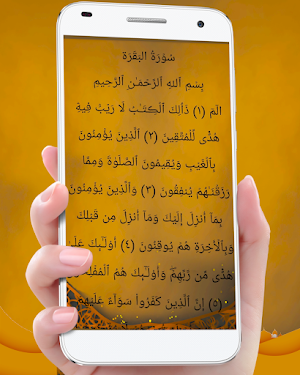 سُورَةُ البَقَرَة
بِسْمِ اَللهِ اَلرَّحْمٰنِ اَلرَّحِيمِ
الٓمٓ (١) ذَٰلِكَ اَلْكِتَٰبُ لَا رَيْبَ فِيهِ
هُدًى لِّلْمُتَّقِينَ (٢) اَلَّذِينَ يُؤْمِنُونَ
بِالْغَيْبِ وَيُقِيمُونَ اَلصَّلَوٰةَ وَمِمَّا
رَزَقْنَٰهُمْ يُنفِقُونَ (٣) وَالَّذِينَ يُؤْمِنُونَ
بِمَا أُنزِلَ إِلَيْكَ وَمَا أُنزِلَ مِن قَبْلِكَ
وَبِالْآخِرَةِ هُمْ يُوقِنُونَ (٤) أُولَٰئِكَ عَلَىٰ
هُدًى مِّن رَّبِّهِمْ وَأُولَٰئِكَ هُمُ
(٥) إِنَّ الَّذِينَ كَفَرُوا سَوَآءٌ عَلَيْهِمْ